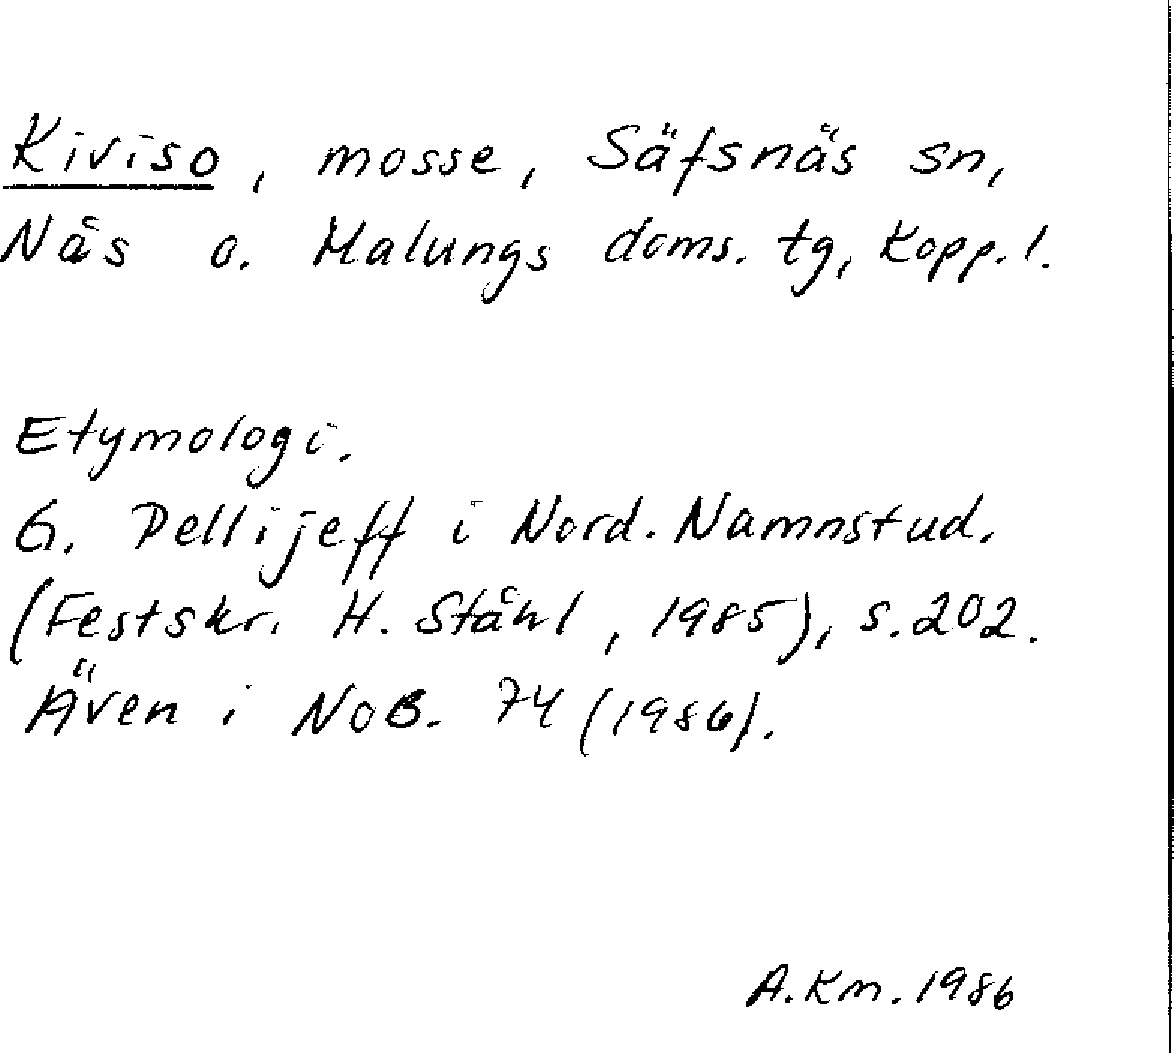 Kiviso, mosse, Säfsnäs sn,
Nås o. Malungs doms. tg, Kopp. l.
Etymologi.
G. Pellijeff i Nord. Namnstud.
(Festskr. H. Ståhl, 1985), s. 202.
Även i NoB. 74 (1986).
A. Km. 1986